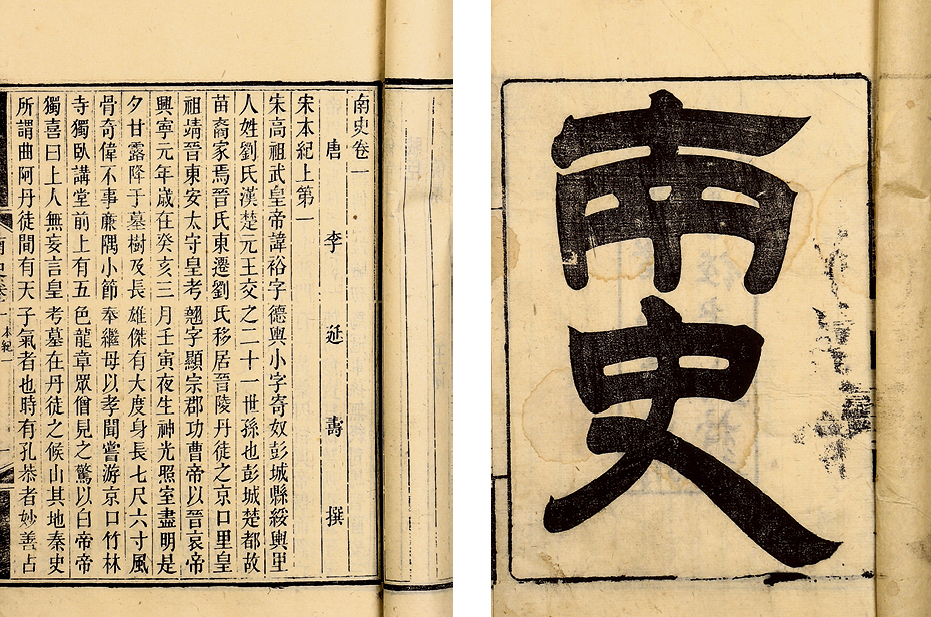 南史
南史卷一
唐 李 延 壽 撰
宋本紀上第一
宋高祖武皇帝諱裕字德輿小字寄奴彭城縣綏輿里
人姓劉氏漢楚元王交之二十一世孫也彭城楚都故
苗裔家焉晉氏東遷劉氏移居晉陵丹徒之京口里皇
祖靖晉東安太守皇考翹字顯宗郡功曹帝以晉哀帝
興寧元年歲在癸亥三月壬寅夜生神光照室盡明是
夕甘露降于墓樹及長雄傑有大度身長七尺六寸風
骨奇偉不事廉隅小節奉繼母以孝聞嘗游京口竹林
寺獨臥講堂前上有五色龍章眾僧見之驚以白帝帝
獨喜曰上人無妄言皇考墓在丹徒之候山其地秦史
所謂曲阿丹徒間有天子氣者也時有孔恭者妙善占
本紀一